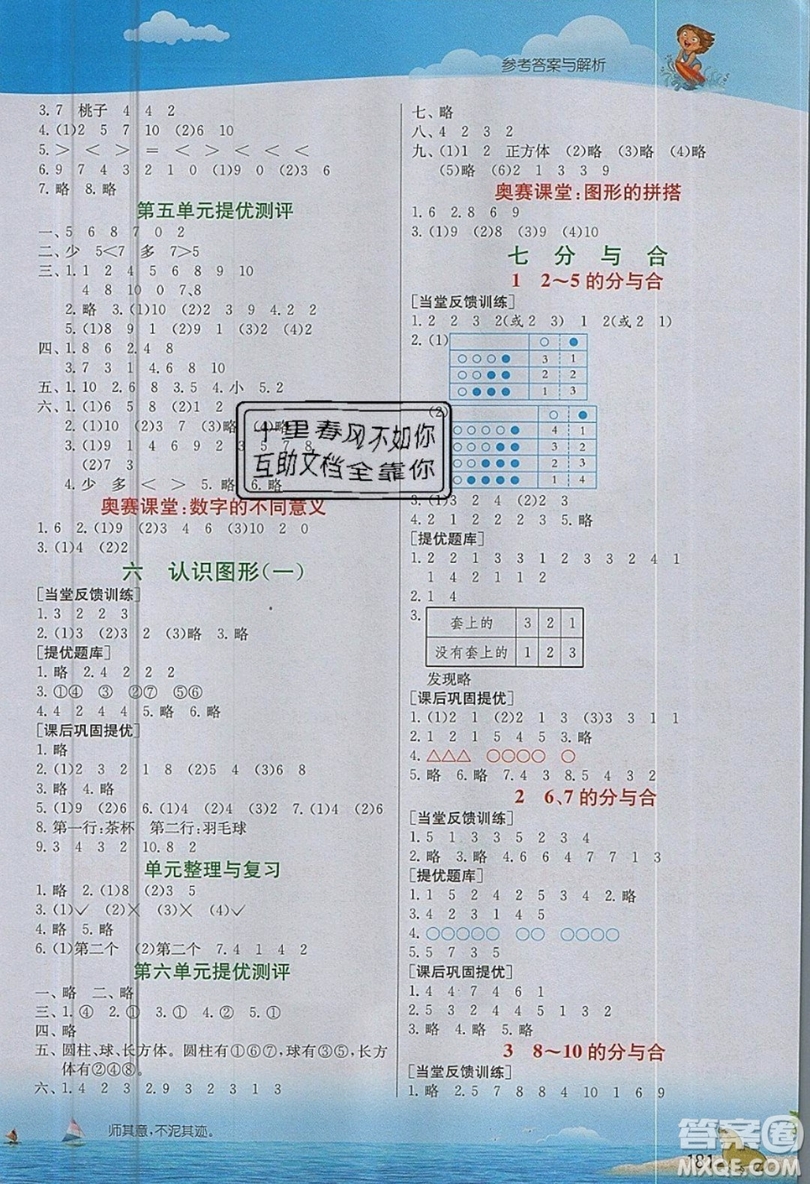 参考答案与解析
3. 7 桃子 4 4 2
4. (1)2 5 7 10 (2)6 10
5. > < > = < > < >
6. 9 7 4 3 2 1 0 (1)9 (2)3 6
7. 略 8. 略
第五单元提优测评
一、5 6 8 7 0 2
二、少 5<7 多 7>5
三、1. 1 2 4 5 7 8 9 2 3
4 8 10 0 7、8
2. 略 3. (1)5 (2)2 3 9 4. 2 2
5. (1)8 9 1 (2)9 1 (3)5 1
四、1. 8 6 2. 4 8
3. 7 3 1 4. 8 3 10
五、1. 10 2. 6 8 3. 5 4. 小 5. 2
六、1. (1)6 5 8 (2)1 2
2. (1)10 (2)2 (3)略 (4)略
3. (1)9 1 4 6 9 2 3 5 7 8
(2)7 3
4. 少 多 < > 5. 略 6. 略
奥赛课堂:数字的不同意义
1. 6 2. (1)9 3 4 6 (3)10 2 0
3. (1)4 (2)2
六 认识图形(一)
[当堂反馈训练]
1. 3 2 2 3
2. (1)3 (2)3 2 (3)略 3. 略
[提优题库]
1. 略 2. 4 2 2 2
3. ①④ ③ ②⑦ ⑤⑥
4. 4 2 4 4 5. 略 6. 略
[课后巩固提优]
1. 略
2. (1)2 3 2 1 8 (2)2 3 1 2
3. 略 4. 略
5. (1)2 (2)9 6. (1)4 (2)4 7. (1)4 (2)6
8. 第一行:茶杯 第二行:羽毛球
9. 3 4 3 2 10. 8 2
单元整理与复习
1. 略 2. (1)8 (2)3 5
3. (1)✓ (2)× (3)× (4)✓
4. 略 5. 略
6. (1)第二个 (2)第二个 7. 4 1 4 2
第六单元提优测评
一、略 二、略
三、1. ④ 2. ① 3. ① 4. ③ 5. ①
四、略
五、圆柱、球、长方体。圆柱有①⑥⑦,球有③⑤,长方
体有②④⑧。
六、1. 4 2 3 2. 9 3 1 3 2 3. 2 2
师其意,不泥其迹。
七、略
八、4 2 3 2
九、(1)1 2 正方体 (2)略 (3)略 (4)略
(5)略 (6)2 1 3 3 9
奥赛课堂:图形的拼搭
1. 6 2. 8 6 9
3. (1)9 (2)9 (3)9 (4)10
七 分 与 合
1 2~5的分与合
[当堂反馈训练]
1. 2 2 3 2(或 2 3) 1 2(或 2 1)
2. (1) ○ ●
○○○● 3 1
○○●● 2 2
○●●● 1 3
(2) ○ ●
○○○○● 4 1
○○○●● 3 2
○○●●● 2 3
○●●●● 1 4
3. (1)3 2 4 (2)2 3
4. 2 1 2 2 2 3 5. 略
[提优题库]
1. 2 2 1 3 3 1 2 3 3 2 4 1
1 4 2 1 1 2
2. 1 4
3. 套上的 3 2 1
没有套上的 1 2 3
发现略
[课后巩固提优]
1. (1)2 1 (2)2 1 3 (3)1 2 3 4
2. 1 2 1 5 4 5 3. 略
4. △△△ ○○○○ ○
5. 略 6. 略 7. 4 3 8. 5 4 3 2
2 6、7的分与合
[当堂反馈训练]
1. 5 1 3 3 5 2 3 4
2. 略 3. 略 4. 5 6 4 7 7 1 3
[提优题库]
1. 1 5 2 4 2 5 3 4 2. 略
3. 4 2 3 1 4 5
4. ○○○○○ ○○ ○○○○
5. 5 7 3 5
[课后巩固提优]
1. 4 4 7 4 6 1
2. 5 2 3 4 5 5 2 4 3
3. 略 4. 略 5. 略
3 8~10的分与合
[当堂反馈训练]
1. 略 2. 7 8 8 8 4 10 1 6 9
181
十里春风不如你
互助文档全靠你
答案圈
MXQE.COM